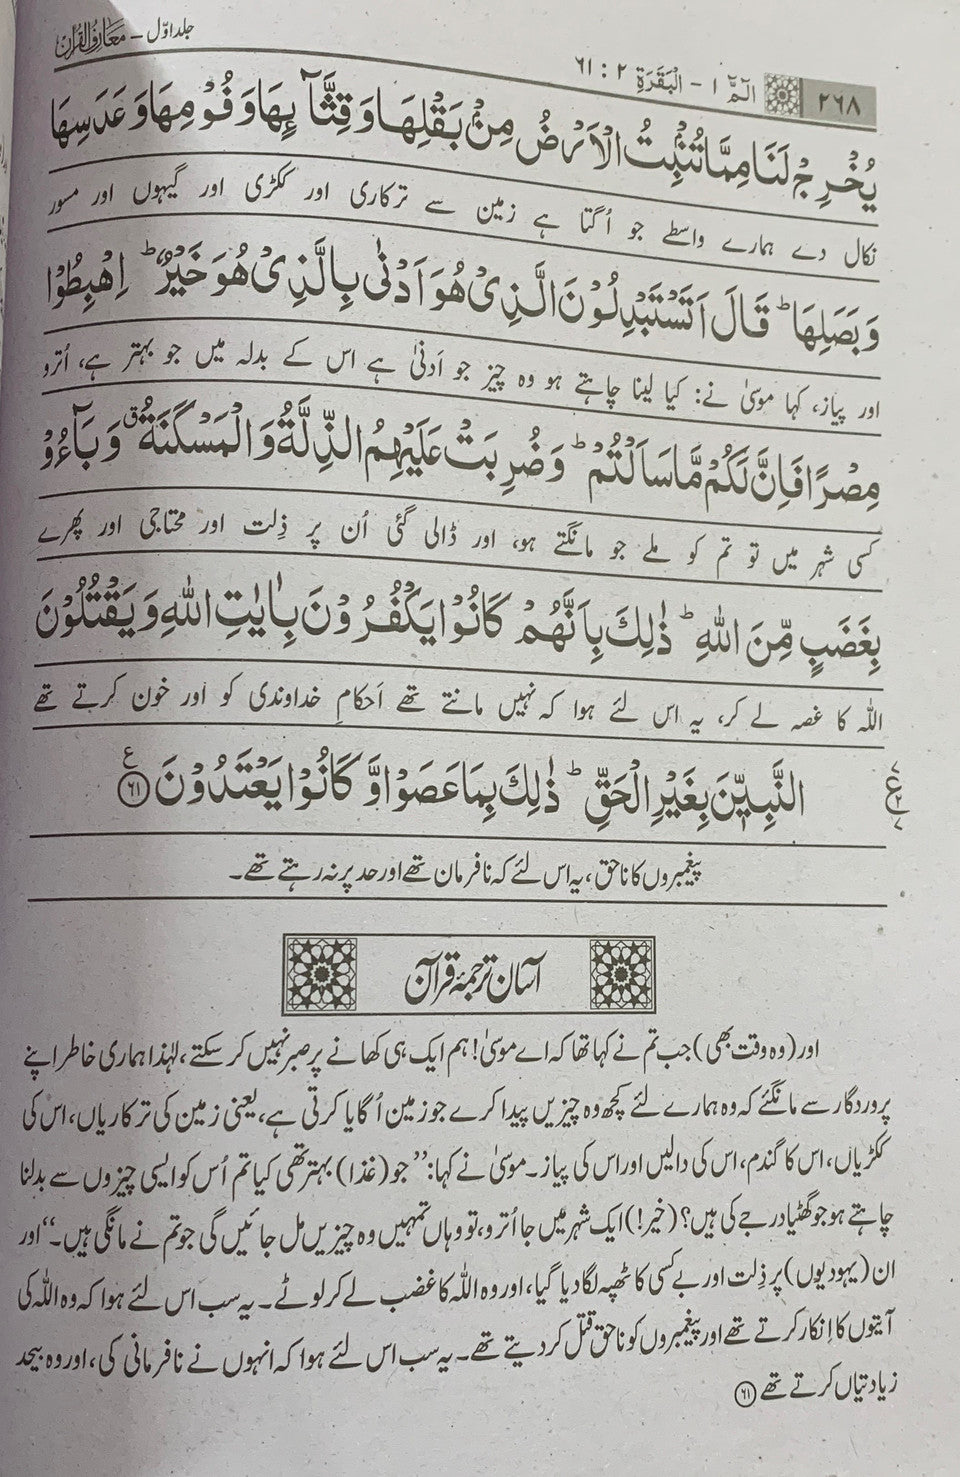 ۲۶۸ الٓمّٓ ۱ - الْبَقَرَة ۲ : ۶۱ جلد اوّل - معارف القرآن
يُخْرِجْ لَنَا مِمَّا تُنْۢبِتُ الْاَرْضُ مِنْۢ بَقْلِهَا وَ قِثَّآىِٕهَا وَ فُوْمِهَا وَ عَدَسِهَا
نکال دے ہمارے واسطے جو اُگتا ہے زمین سے ترکاری اور ککڑی اور گیہوں اور مسور
وَ بَصَلِهَا ؕ قَالَ اَتَسْتَبْدِلُوْنَ الَّذِیْ هُوَ اَدْنٰی بِالَّذِیْ هُوَ خَیْرٌ ؕ اِهْبِطُوْا
اور پیاز، کہا موسیٰ نے: کیا لینا چاہتے ہو وہ چیز جو اَدنیٰ ہے اس کے بدلہ میں جو بہتر ہے، اُترو
مِصْرًا فَاِنَّ لَكُمْ مَّا سَاَلْتُمْ ؕ وَ ضُرِبَتْ عَلَیْهِمُ الذِّلَّةُ وَ الْمَسْكَنَةُ ۗ وَ بَآءُوْ
کسی شہر میں تو تم کو ملے جو مانگتے ہو، اور ڈالی گئی اُن پر ذِلت اور محتاجی اور پھرے
بِغَضَبٍ مِّنَ اللّٰهِ ؕ ذٰلِكَ بِاَنَّهُمْ كَانُوْا یَكْفُرُوْنَ بِاٰیٰتِ اللّٰهِ وَ یَقْتُلُوْنَ
اللّٰہ کا غصہ لے کر، یہ اس لئے ہوا کہ نہیں مانتے تھے اَحکامِ خداوندی کو اور خون کرتے تھے
النَّبِیّٖنَ بِغَیْرِ الْحَقِّ ؕ ذٰلِكَ بِمَا عَصَوْا وَّ كَانُوْا یَعْتَدُوْنَ ﴿۶۱﴾ ع
پیغمبروں کا ناحق، یہ اس لئے کہ نافرمان تھے اور حد پر نہ رہتے تھے۔
آسان ترجمۂ قرآن
اور (وہ وقت بھی) جب تم نے کہا تھا کہ اے موسیٰ! ہم ایک ہی کھانے پر صبر نہیں کر سکتے، لہٰذا ہماری خاطر اپنے
پروردگار سے مانگئے کہ وہ ہمارے لئے کچھ وہ چیزیں پیدا کرے جو زمین اُگایا کرتی ہے، یعنی زمین کی ترکاریاں، اس کی
ککڑیاں، اس کا گندم، اس کی دالیں اور اس کی پیاز۔ موسیٰ نے کہا: ’’جو (غذا) بہتر تھی کیا تم اُس کو ایسی چیزوں سے بدلنا
چاہتے ہو جو گھٹیا درجے کی ہیں؟ (خیر!) ایک شہر میں جا اُترو، تو وہاں تمہیں وہ چیزیں مل جائیں گی جو تم نے مانگی ہیں۔‘‘ اور
ان (یہودیوں) پر ذِلت اور بے کسی کا ٹھپہ لگا دیا گیا، اور وہ اللّٰہ کا غضب لے کر لوٹے۔ یہ سب اس لئے ہوا کہ وہ اللّٰہ کی
آیتوں کا اِنکار کرتے تھے اور پیغمبروں کو ناحق قتل کر دیتے تھے۔ یہ سب اس لئے ہوا کہ انہوں نے نافرمانی کی، اور وہ بیحد
زیادتیاں کرتے تھے ﴿۶۱﴾